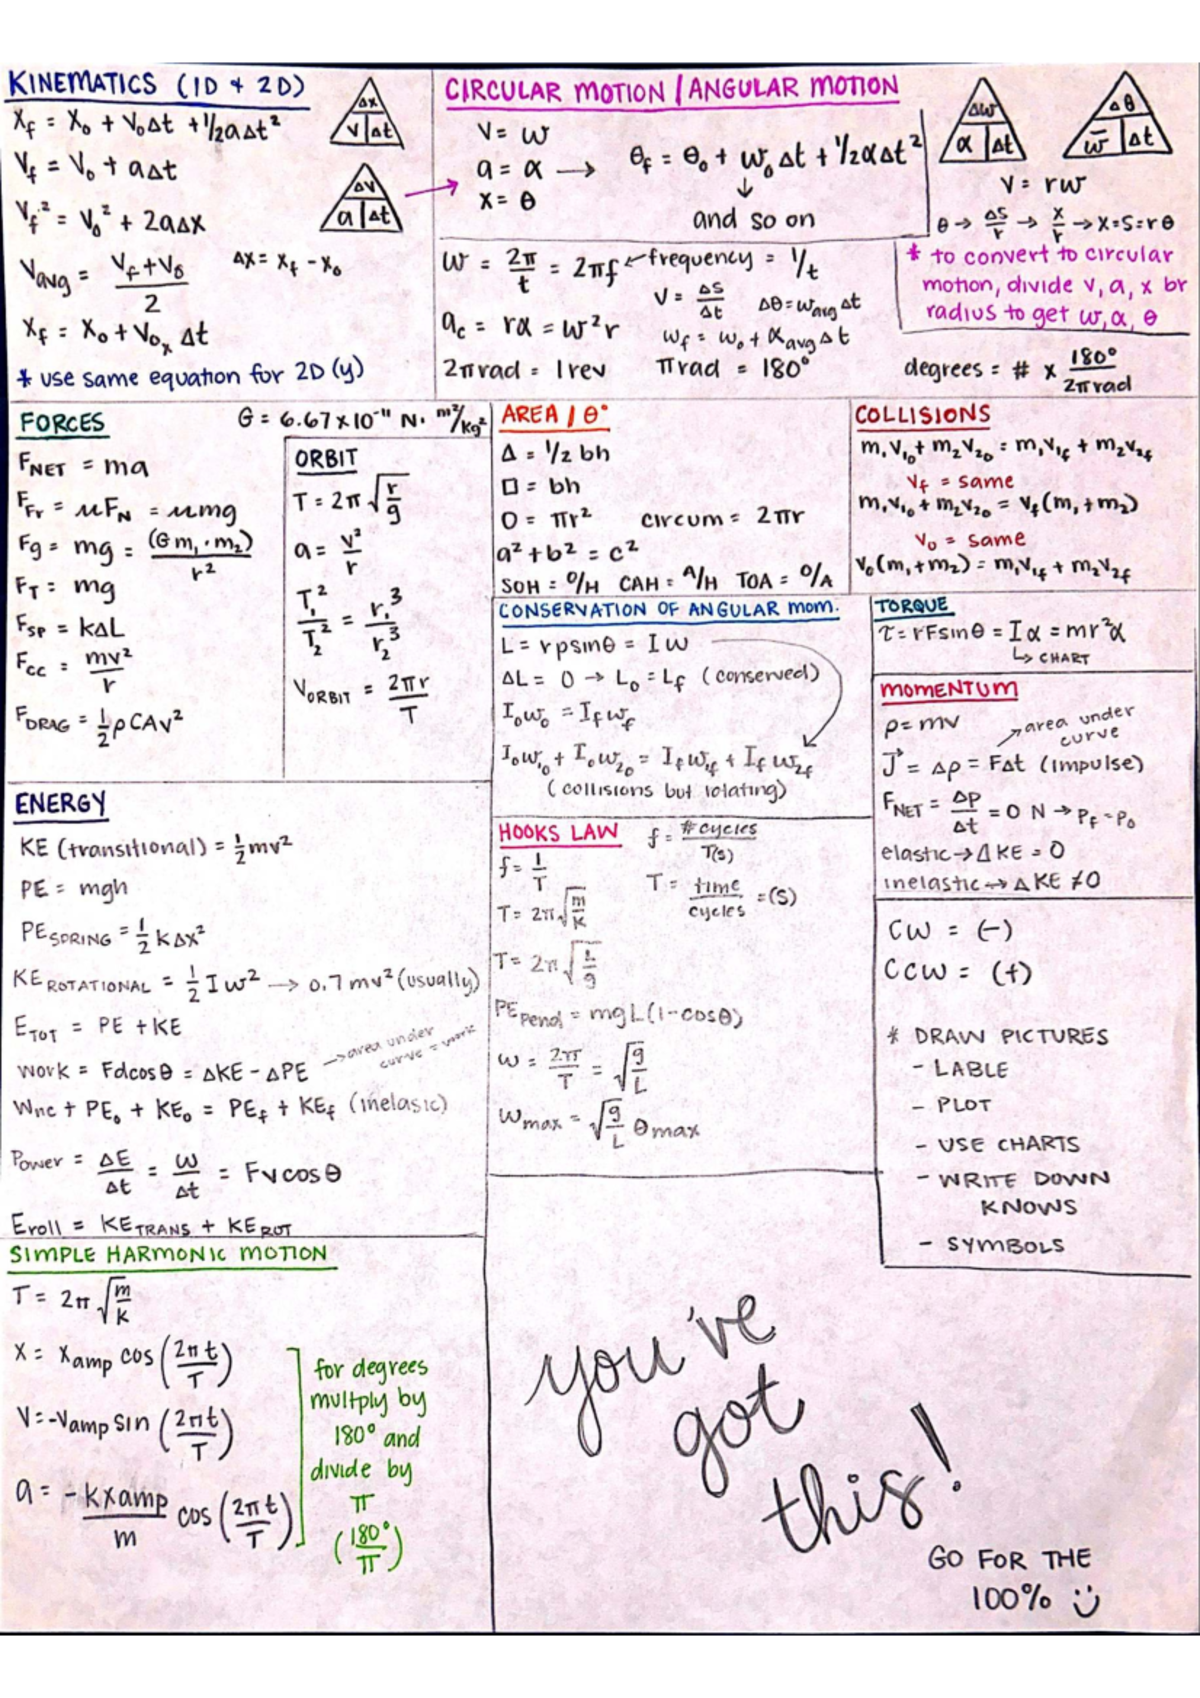 KINEMATICS (1D + 2D)
Xf = X₀ + V₀Δt + 1/2aΔt²
Vf = V₀ + aΔt
Vf² = V₀² + 2aΔx
Vavg = (Vf + V₀)/2
Δx = Xf - X₀
Xf = X₀ + V₀ₓ Δt
* use same equation for 2D (y)
Δx
V Δt
Δv
a Δt
CIRCULAR MOTION / ANGULAR MOTION
V = ω
a = α → θf = θ₀ + ω₀Δt + 1/2αΔt²
x = θ
↓
and so on
Δω
α Δt
Δθ
ω̄ Δt
V = rω
θ → Δs/r → x/r → X=S=rθ
* to convert to circular
motion, divide v, a, x br
radius to get ω, α, θ
ω = 2π/t = 2πf ← frequency = 1/t
V = Δs/Δt Δθ = ωavg Δt
ac = rα = ω²r
ωf = ω₀ + αavg Δt
2π rad = 1 rev π rad = 180°
degrees = # x 180°/2πrad
FORCES
G = 6.67 x 10⁻¹¹ N· m²/kg²
FNET = ma
FFr = μFN = μmg
Fg = mg = (G m₁ · m₂)/r²
FT = mg
Fsp = kΔL
Fcc = mv²/r
FDRAG = 1/2 ρCAv²
ORBIT
T = 2π √(r/g)
a = v²/r
T₁²/T₂² = r₁³/r₂³
VORBIT = 2πr/T
AREA / θ°
Δ = 1/2 bh
□ = bh
O = πr² circum = 2πr
a² + b² = c²
SOH = O/H CAH = A/H TOA = O/A
COLLISIONS
m₁v₁₀ + m₂v₂₀ = m₁v₁f + m₂v₂f
Vf = same
m₁v₁₀ + m₂v₂₀ = Vf(m₁+m₂)
V₀ = same
V₀(m₁+m₂) = m₁v₁f + m₂v₂f
CONSERVATION OF ANGULAR mom.
L = rpsinθ = Iω
ΔL = 0 → L₀ = Lf (conserved)
I₀ω₀ = Ifωf
I₀ω₁₀ + I₀ω₂₀ = Ifω₁f + Ifω₂f
(collisions but rotating)
TORQUE
τ = rFsinθ = Iα = mr²α
↳ CHART
MOMENTUM
p = mv
→ area under
curve
J⃗ = Δp = FΔt (impulse)
FNET = Δp/Δt = 0 N → Pf = P₀
elastic → ΔKE = 0
inelastic → ΔKE ≠ 0
ENERGY
KE (transitional) = 1/2 mv²
PE = mgh
PE SPRING = 1/2 kΔx²
KE ROTATIONAL = 1/2 Iω² → 0.7 mv² (usually)
ETOT = PE + KE
→ area under
curve = work
Work = Fdcosθ = ΔKE - ΔPE
Wnc + PE₀ + KE₀ = PEf + KEf (inelasic)
Power = ΔE/Δt = W/Δt = Fvcosθ
Eroll = KETRANS + KEROT
HOOKS LAW
f = # cycles/T(s)
f = 1/T
T = time/cycles = (s)
T = 2π√(m/k)
T = 2π√(L/g)
PEPend = mgL(1-cosθ)
ω = 2π/T = √(g/L)
ωmax = √(g/L) θmax
CW = (-)
CCW = (+)
* DRAW PICTURES
- LABLE
- PLOT
- USE CHARTS
- WRITE DOWN
KNOWS
- SYMBOLS
SIMPLE HARMONIC MOTION
T = 2π √(m/k)
X = Xamp cos (2πt/T)
V = -Vamp sin (2πt/T)
a = -kxamp/m cos (2πt/T)
for degrees
multply by
180° and
divide by
π
(180°/π)
you've
got
this!
GO FOR THE
100%